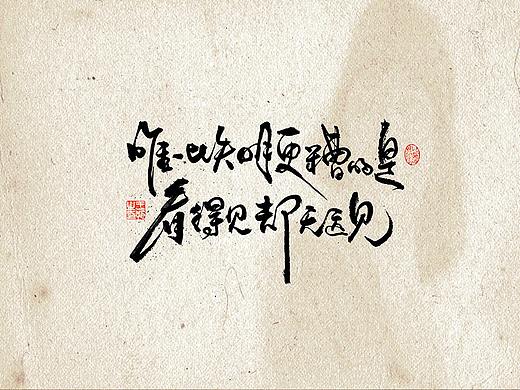 唯一比失明更糟的是
看得见却无远见